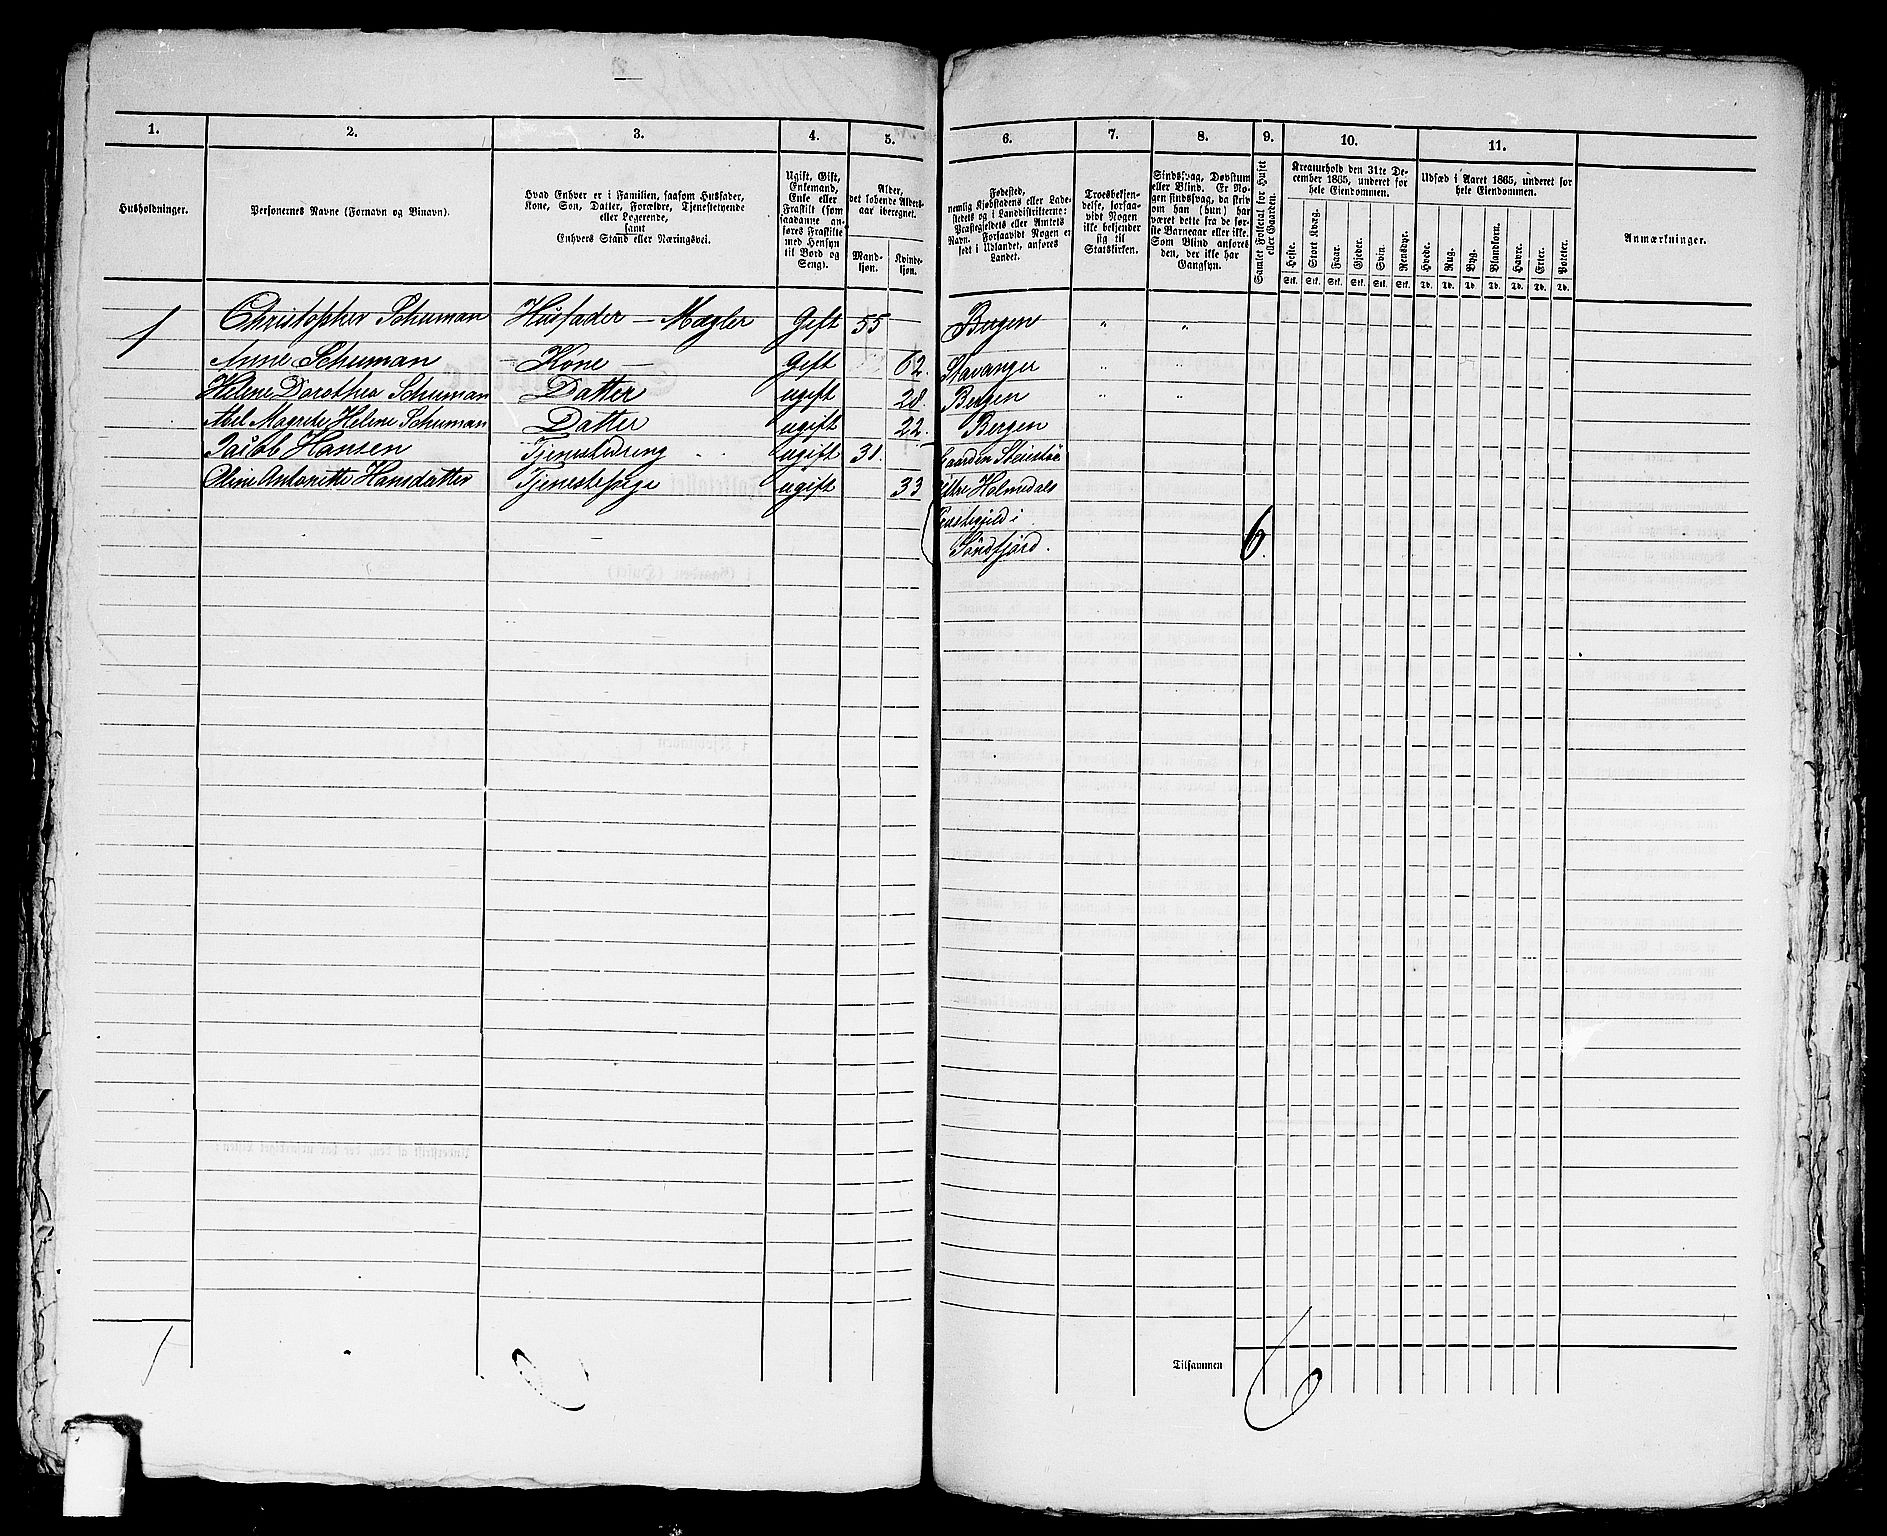 1. 2. 3. 4. 5. 6. 7. 8. 9. 10. 11.
Husholdninger.
Personernes Navne (Fornavn og Binavn).
Hvad Enhver er i Familien, saasom Husfader,
Kone, Søn, Datter, Forældre, Tjenestetyende
eller Logerende,
samt
Enhvers Stand eller Næringsvei.
Ugift, Gift,
Enkemand,
Enke eller
Fraskilt (som
saadanne an-
føres Fraskilte
med Hensyn
til Bord og
Seng).
Alder,
det løbende Alders-
aar iberegnet.
Mand-
kjøn.
Kvinde-
kjøn.
Fødested,
nemlig Kjøbstadens eller Lade-
stedets og i Landdistrikterne:
Præstegjeldets eller Amtets
Navn. Forsaavidt Nogen er
født i Udlandet, anføres
Landet.
Troesbekjen-
delse, forsaa-
vidt Nogen
ikke bekjender
sig til
Statskirken.
Sindssvag, Døvstum
eller Blind. Er No-
gen sindssvag, da skriv
om han (hun) har
været dette fra de før-
ste Barneaar eller ikke.
Som Blind anføres
den, der ikke har
Gangsyn.
Samlet Folketal for Huset
eller Gaarden.
Kreaturhold den 31te De-
cember 1865, underet for
hele Eiendommen.
Heste. Stort Kvæg. Faar. Gjeder. Svin. Rensdyr.
Stk. Stk. Stk. Stk. Stk. Stk.
Udsæd i Aaret 1865, underet for
hele Eiendommen.
Hvede. Rug. Byg. Blandkorn. Havre. Erter. Poteter.
Td. Td. Td. Td. Td. Td. Td.
Anmærkninger.
1 Christopher Schuman Husfader — Mægler Gift 55 Bergen " "
Anne Schuman — Kone — Gift 62. Stavanger " "
Helene Dorothea Schuman Datter ugift 28. Bergen " "
Abel Magrete Helene Schuman Datter ugift 22. Bergen
Jacob Hansen Tjenestedreng ugift 31.
Oline Antonette Hansdatter Tjenestepige ugift 33 Holmedals
i 6.
Søndfjord.
Tilsammen 6
1
6